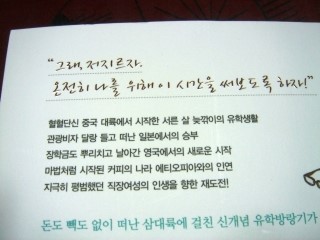 "그래, 저지르자.
온전히 나를 위해 이 시간을 써보도록 하자!"
혈혈단신 중국 대륙에서 시작한 서른 살 늦깎이의 유학생활
관광비자 달랑 들고 떠난 일본에서의 승부
장학금도 뿌리치고 날아간 영국에서의 새로운 시작
마법처럼 시작된 커피의 나라 에티오피아와의 인연
지극히 평범했던 직장여성의 인생을 향한 재도전!!
돈도 빽도 없이 떠난 삼대륙에 걸친 신개념 유학방랑기가